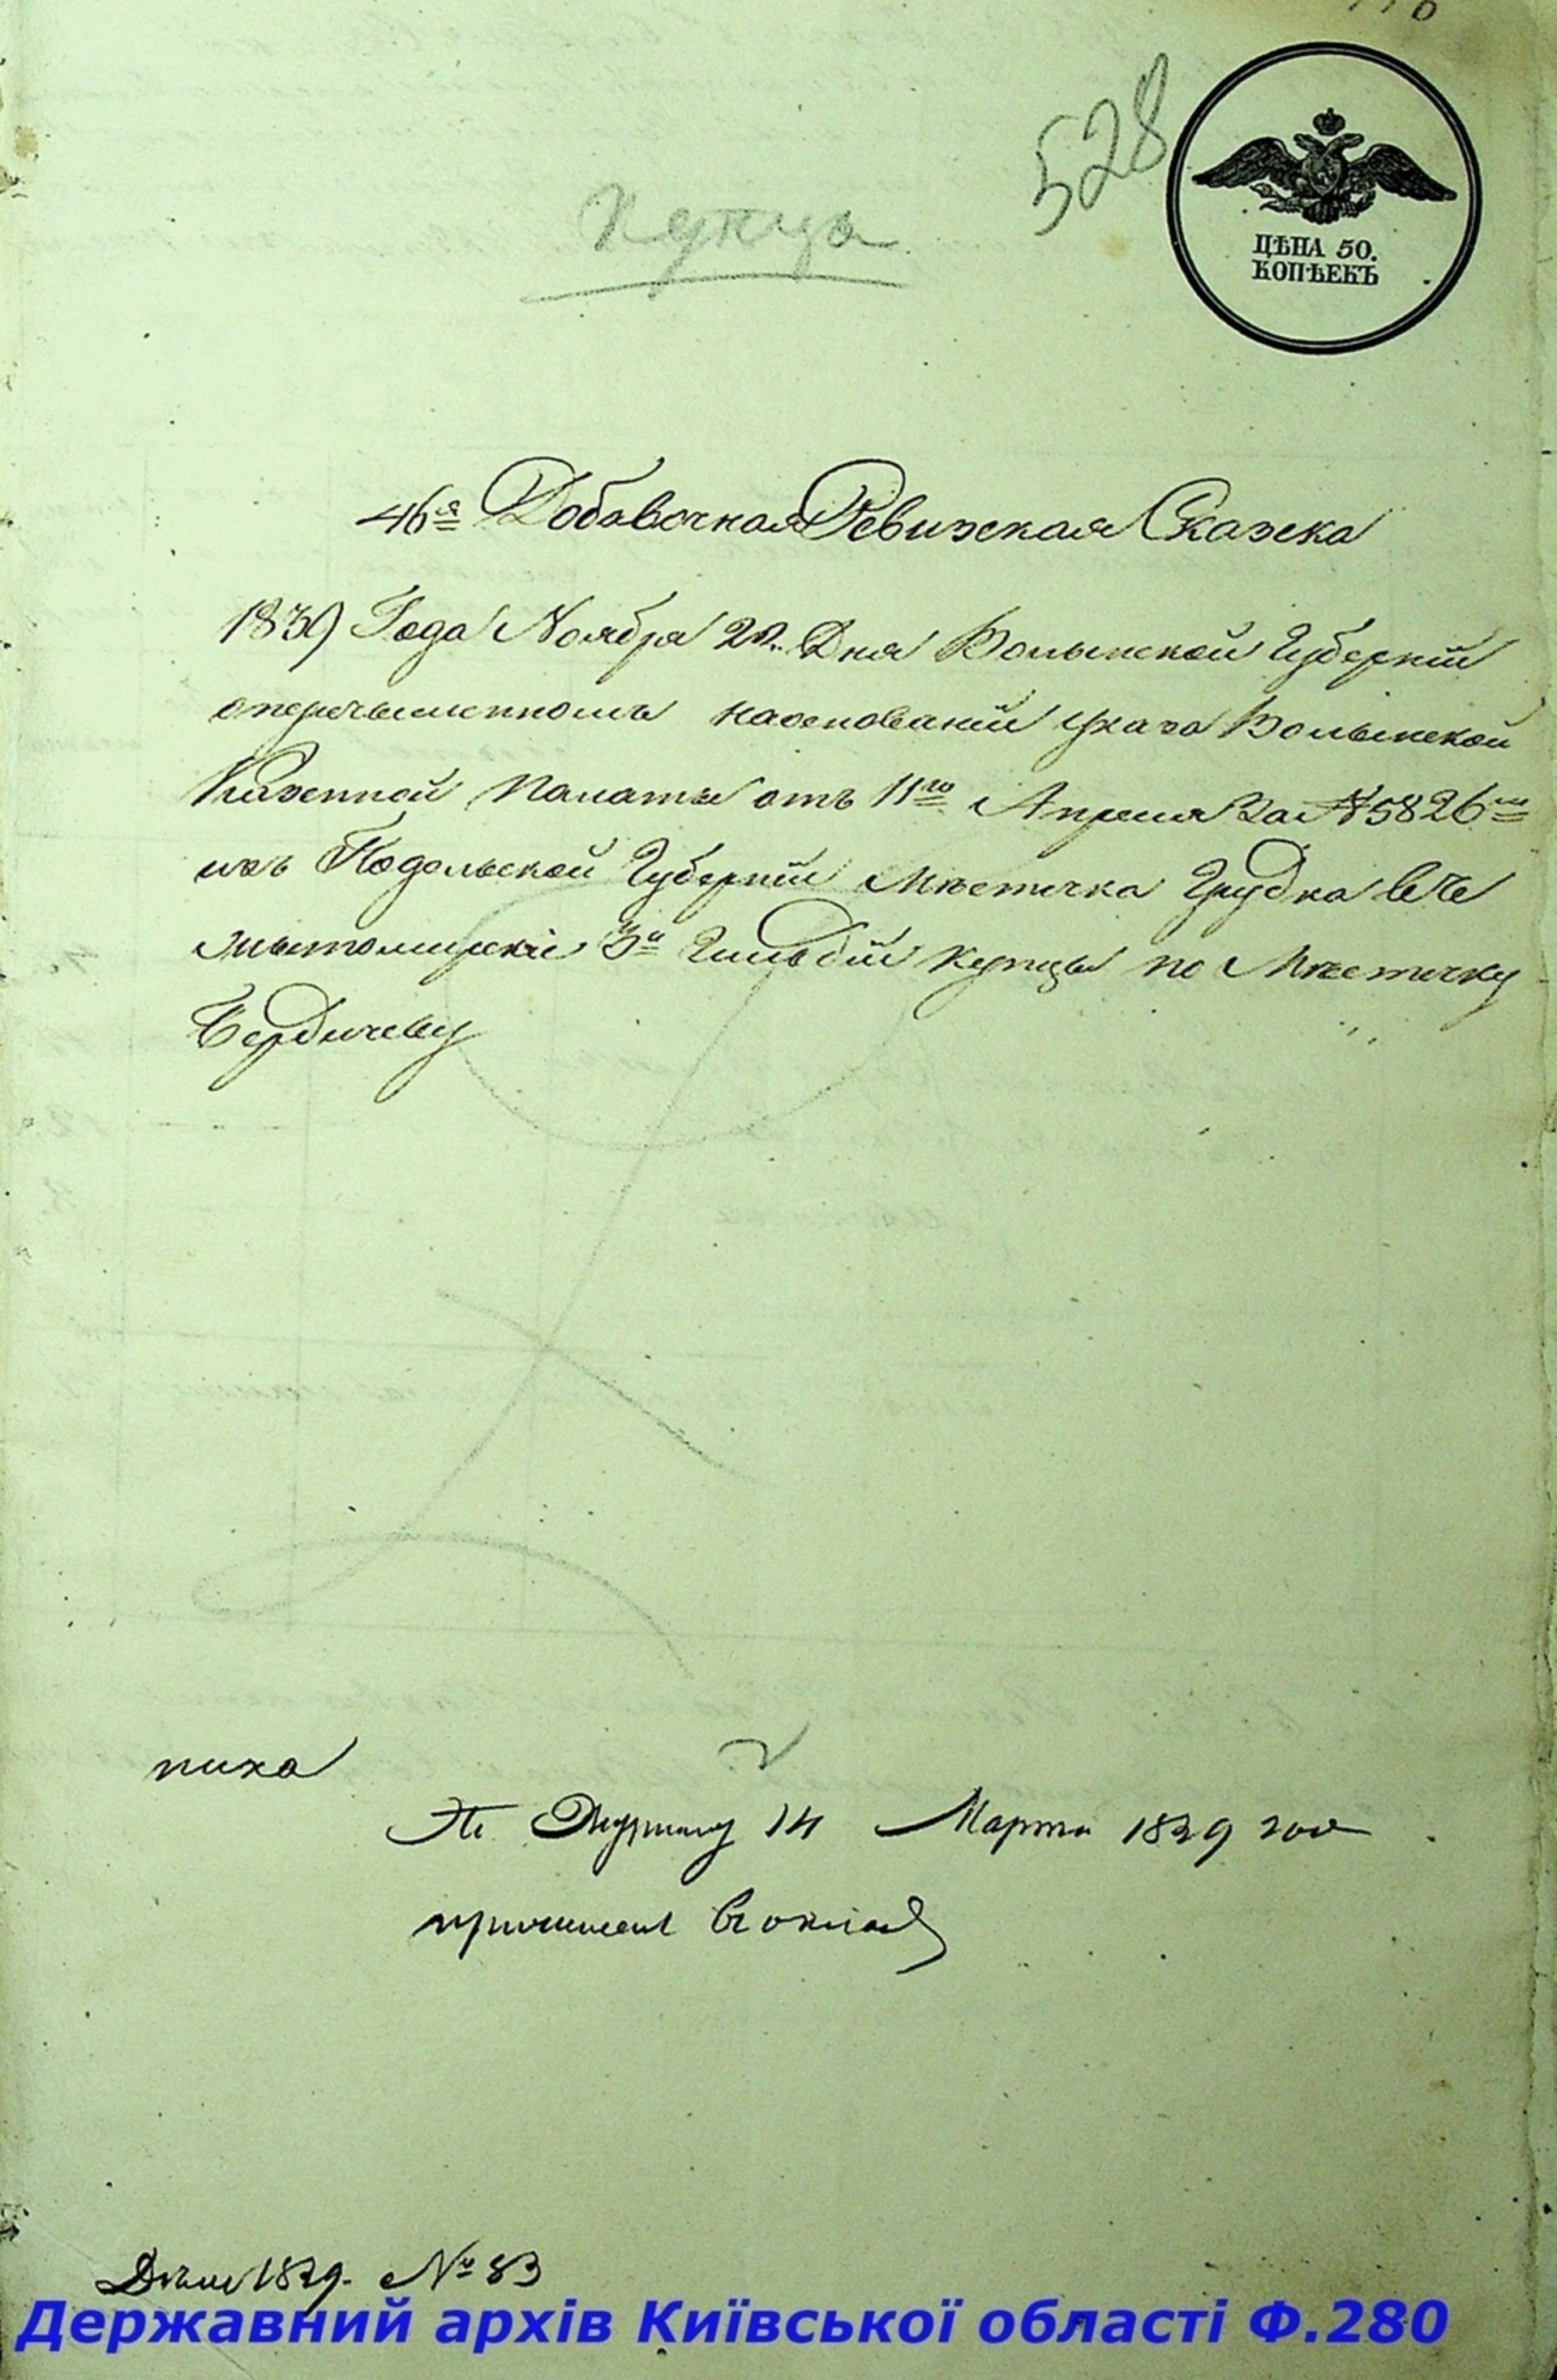 528
Купцы
ЦѢНА 50.
КОПѢЕКЪ
46я Добавочная Ревизская Сказка
1839 Года Ноября 22. Дня Волынской Губерніи
оперечисленномъ наоснованіи указа Волынской
Казенной Палаты отъ 11го Апреля За № 5826мъ
изъ Подольской Губерніи Мѣстечка Грудка въ
Житомирскіе 3й Гильдіи купцы по Мѣстечку
Бердичеву
пиха
По Журналу 14 Марта 1839 года
причислен в оклад
Дѣло 1839. № 83
Державний архів Київської області Ф.280